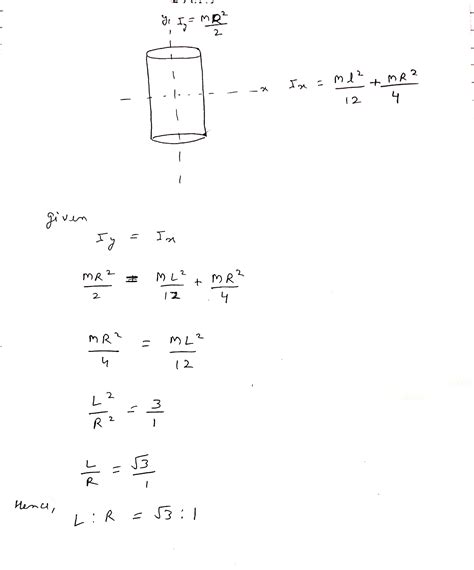 y, I_y = MR²/2
x I_x = Ml²/12 + MR²/4
given
I_y = I_x
MR²/2 = ML²/12 + MR²/4
MR²/4 = ML²/12
L²/R² = 3/1
L/R = √3/1
Hence, L : R = √3 : 1